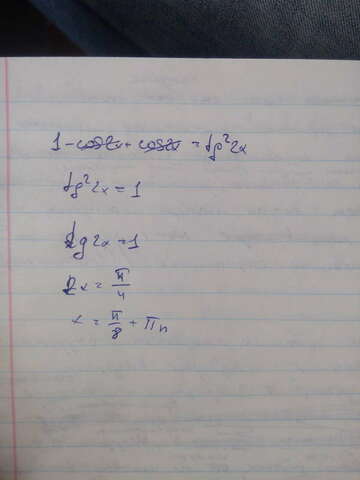 1 - cos2x + cos2x = tg²2x
tg²2x = 1
tg2x = 1
2x = π/4
x = π/8 + πn